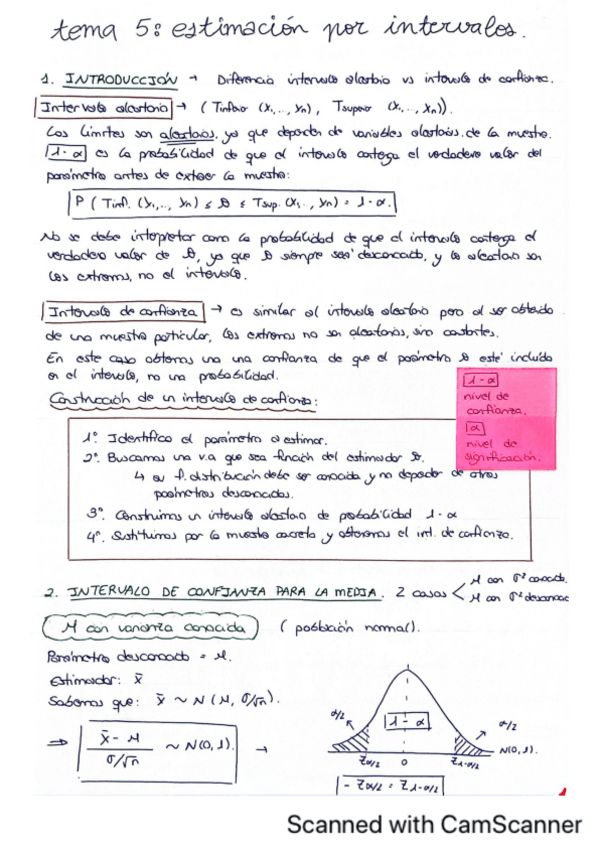 tema 5: estimación por intervalos.
1. INTRODUCCIÓN → Diferencia intervalo aleatorio vs intervalo de confianza.
Intervalo aleatorio → ( Tinferior (X1,..., Xn) , Tsuperior (X1,..., Xn)).
Los límites son aleatorios, ya que dependen de variables aleatorias, de la muestra.
1-α es la probabilidad de que el intervalo contenga el verdadero valor del
parámetro antes de extraer la muestra:
P ( Tinf. (X1,..., Xn) ≤ θ ≤ Tsup. (X1,..., Xn) = 1-α.
No se debe interpretar como la probabilidad de que el intervalo contenga el
verdadero valor de θ, ya que θ siempre será desconocido, y lo aleatorio son
los extremos, no el intervalo.
Intervalo de confianza → es similar al intervalo aleatorio pero al ser obtenido
de una muestra particular, los extremos no son aleatorios, sino constantes.
En este caso obtenemos una una confianza de que el parámetro θ esté incluido
en el intervalo, no una probabilidad.
1-α
nivel de
confianza.
α
nivel de
significación.
Construcción de un intervalo de confianza:
1º Identificar el parámetro a estimar.
2º Buscamos una v.a que sea función del estimador θ.
↳ su f. distribución debe ser conocida y no depender de otros
parámetros desconocidos.
3º Construimos un intervalo aleatorio de probabilidad 1-α
4º Sustituimos por la muestra concreta y obtenemos el int. de confianza.
2. INTERVALO DE CONFIANZA PARA LA MEDIA. 2 casos < M con σ² conocida.
M con σ² desconocida
M con varianza conocida ( población normal).
Parámetro desconocido = M.
Estimador: x̄
Sabemos que: x̄ ~ N (M, σ/√n).
⇒ x̄ - M / σ/√n ~ N(0,1). →
α/2 1-α α/2
Zα/2 0 Z1-α/2 N(0,1).
- Zα/2 = Z1-α/2
Scanned with CamScanner